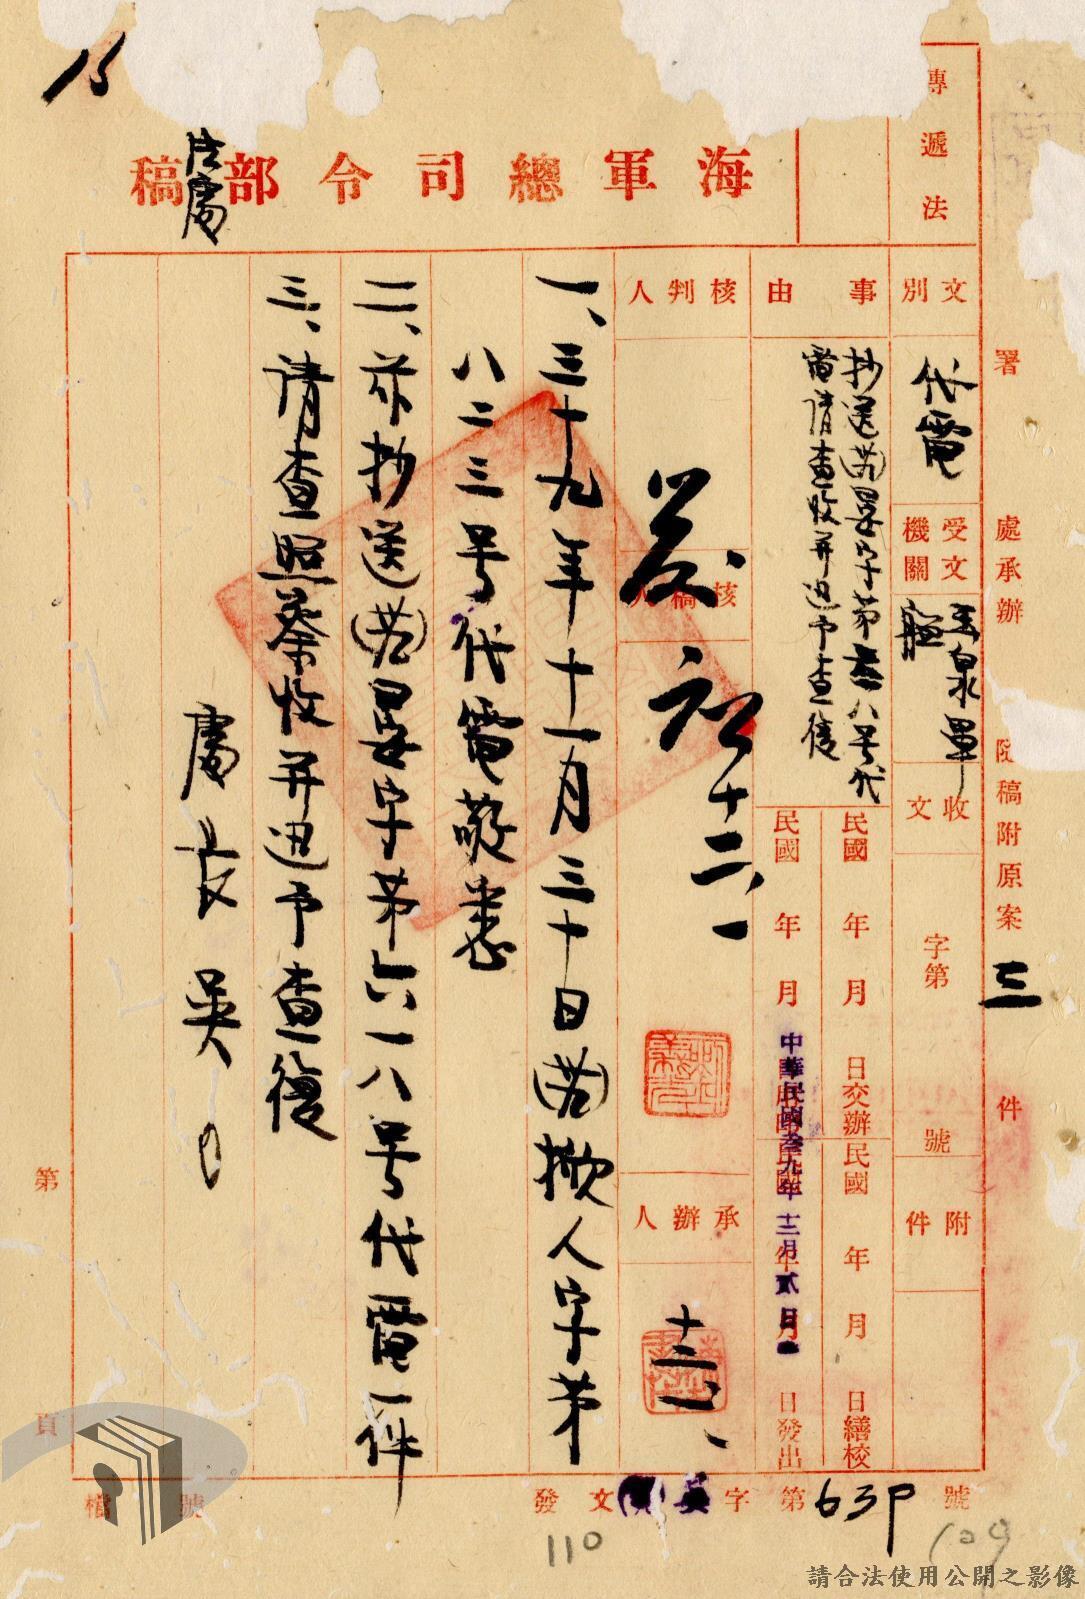 15
專遞法
海軍總司令部稿
法處
署 處承辦 院稿附原案 三 件
文別
代電
受文機關
玉泉軍艦
收文 字第 號
附件
事由
抄送(芳)晏字第六一八号代
電請查收并迅予查復
民國 年 月 日交辦
民國 年 月 日繕校
民國 年 月
民國 年 月 日發出
中華民國叁九年十二月貳日
核判人
核稿人
十二、一
承辦人
十二、一、
一、三十九年十一月三十日(芳)掀人字第
八二三号代電敬悉
二、茲抄送(芳)晏字第六一八号代電一件
三、请查照參收并迅予查復
處長吳
第 頁
檔 號
發文 字第639號
110
109
請合法使用公開之影像